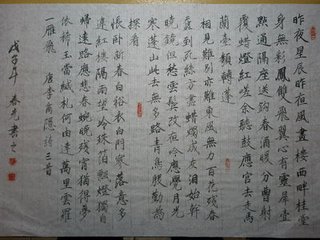 昨夜星辰昨夜風畫樓西畔桂堂
身無彩鳳雙飛翼心有靈犀壹
點通隔座送鈎春酒暖分曹射
覆蠟燈紅嗟余聽鼓應官去走馬
蘭臺類轉蓬
相見難別亦難東風無力百花殘春
蠶到死絲方盡蠟炬成灰淚始幹
曉鏡但愁雲鬢改夜吟應覺月光
寒蓬山此去無多路青鳥殷勤為
探看
悵臥新春白袷衣白門寥落意多
違紅樓隔雨相望冷珠箔飄燈獨自
歸遠路應悲春晼晚殘宵猶得夢
依稀玉璫緘札何由達萬里雲羅
一雁飛 唐李商隱詩三首
戊子年春光書之